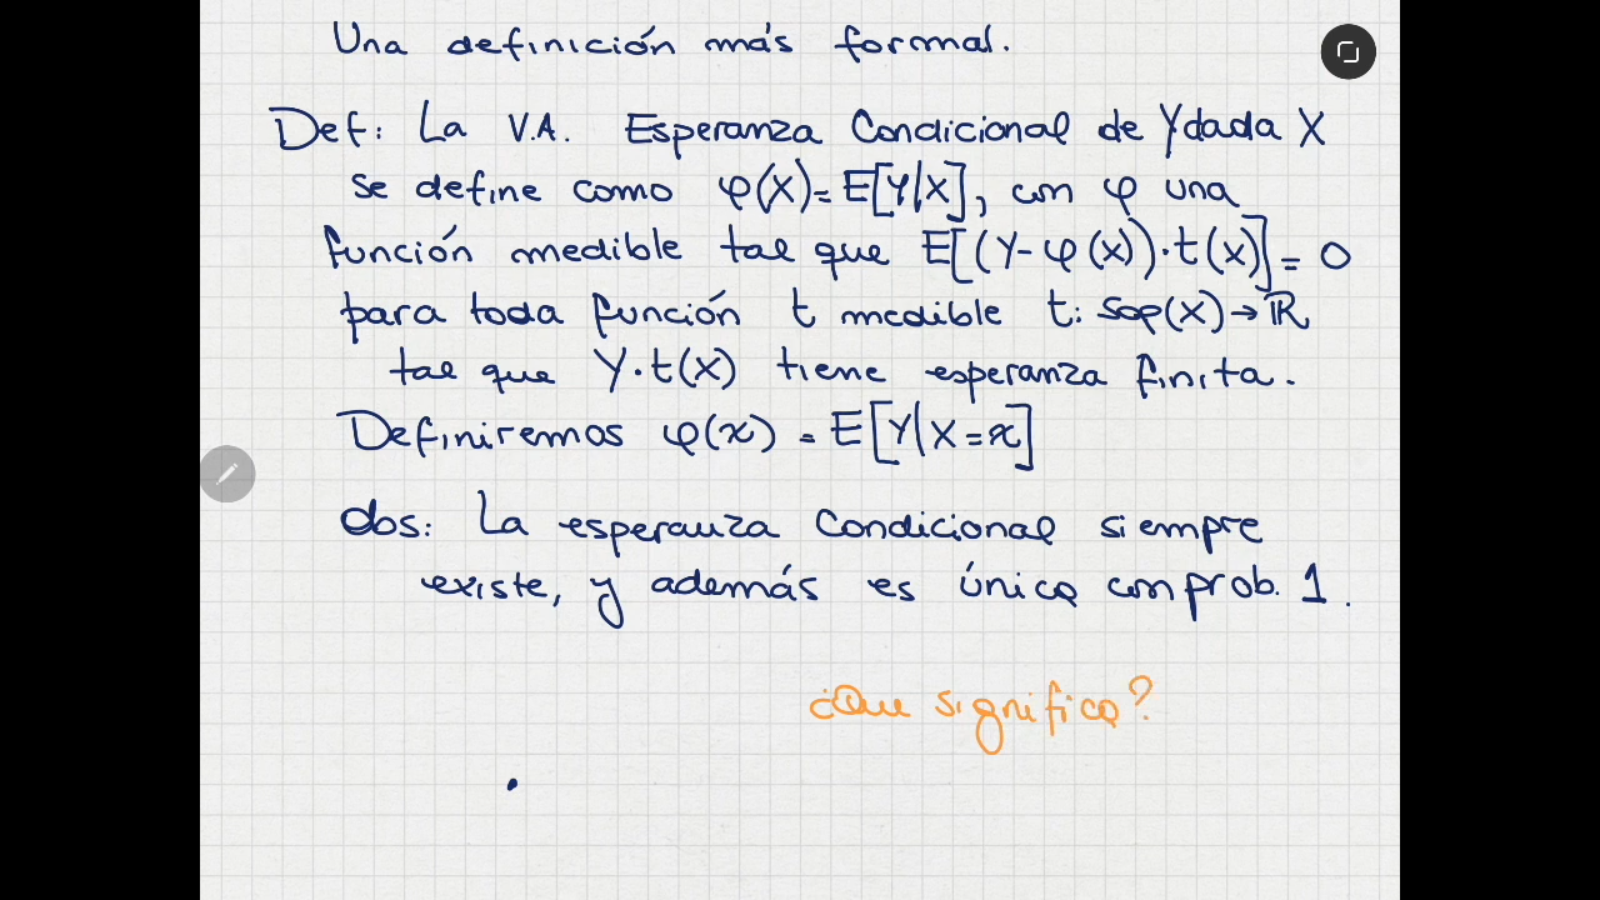 Una definición más formal.
Def: La V.A. Esperanza Condicional de Y dada X
se define como φ(X)=E[Y|X], con φ una
función medible tal que E[(Y-φ(X))·t(X)]=0
para toda función t medible t: sop(X)→ℝ
tal que Y·t(X) tiene esperanza finita.
Definiremos φ(x) = E[Y|X=x]
Obs: La esperanza Condicional siempre
existe, y además es única con prob. 1.
¿Que significa?